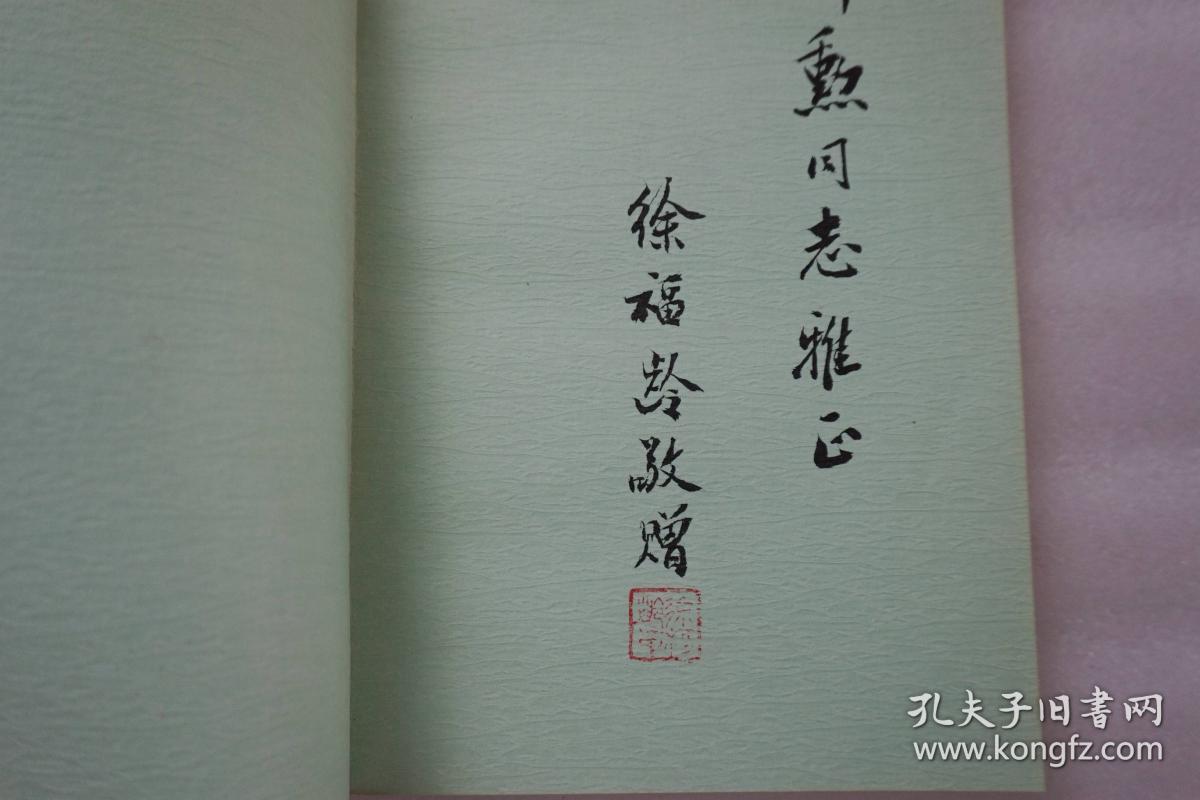 勳同志雅正
徐福龄敬赠
孔夫子旧書网
www.kongfz.com